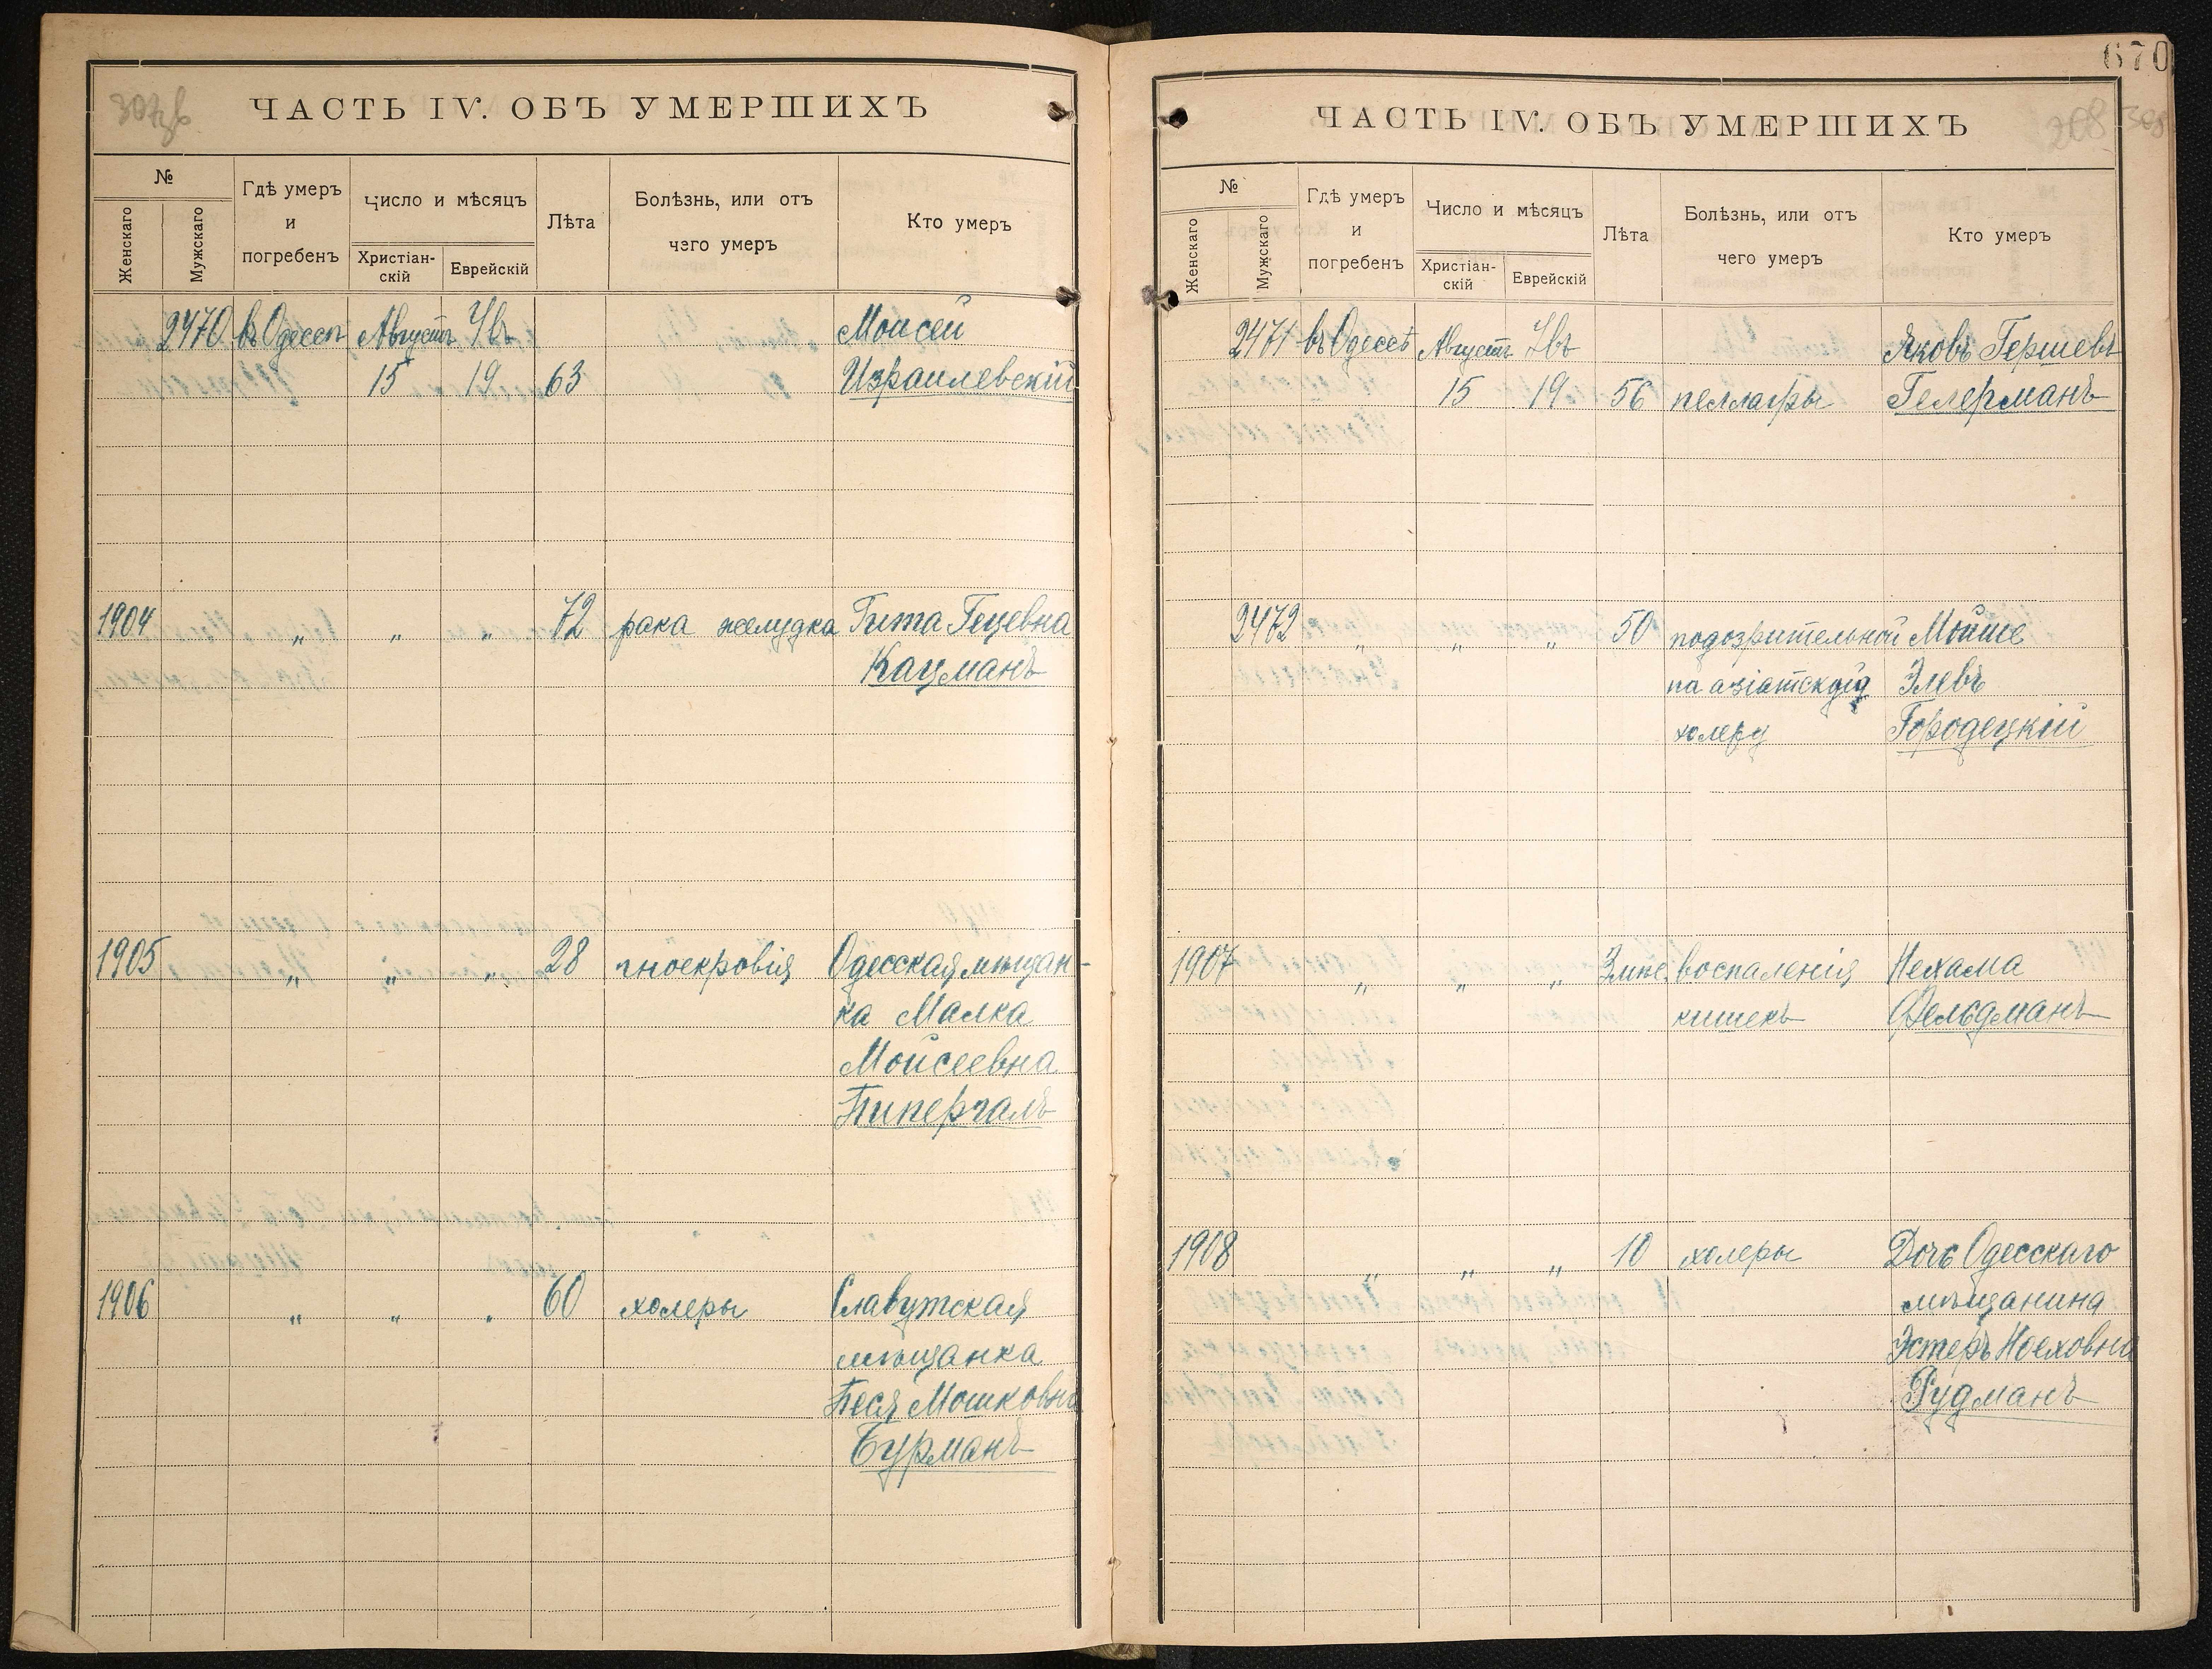 307зв
ЧАСТЬ IV. ОБЪ УМЕРШИХЪ
№
Женскаго
Мужскаго
Гдѣ умеръ
и
погребенъ
Число и мѣсяцъ
Христіан-
скій
Еврейскій
Лѣта
Болѣзнь, или отъ
чего умеръ
Кто умеръ
2470 въ Одессѣ Августъ Увъ Моисей
15 19 63 Израилевскій
1904 „ „ „ 72 рака желудка Гита Гецевна
Кацманъ
1905 „ „ „ 28 гноекровія Одесская мѣщан-
ка Малка
Моисеевна
Пипергалъ
1906 „ „ „ 60 холеры Славутская
мѣщанка
Песя Мошковна
Бурманъ
670
308
ЧАСТЬ IV. ОБЪ УМЕРШИХЪ
№
Женскаго
Мужскаго
Гдѣ умеръ
и
погребенъ
Число и мѣсяцъ
Христіан-
скій
Еврейскій
Лѣта
Болѣзнь, или отъ
чего умеръ
Кто умеръ
2471 въ Одессѣ Августъ Увъ Яковъ Гершевъ
15 19 56 пеллагры Гелерманъ
2472 „ „ „ 50 подозрительной Мойше
на азіатскую Элевъ
холеру Городецкій
1907 „ „ „ 3 мѣс. воспаленія Нехама
кишекъ Фельдманъ
1908 „ „ „ 10 холеры Дочь Одесскаго
мѣщанина
Эстеръ Ноеховна
Рудманъ